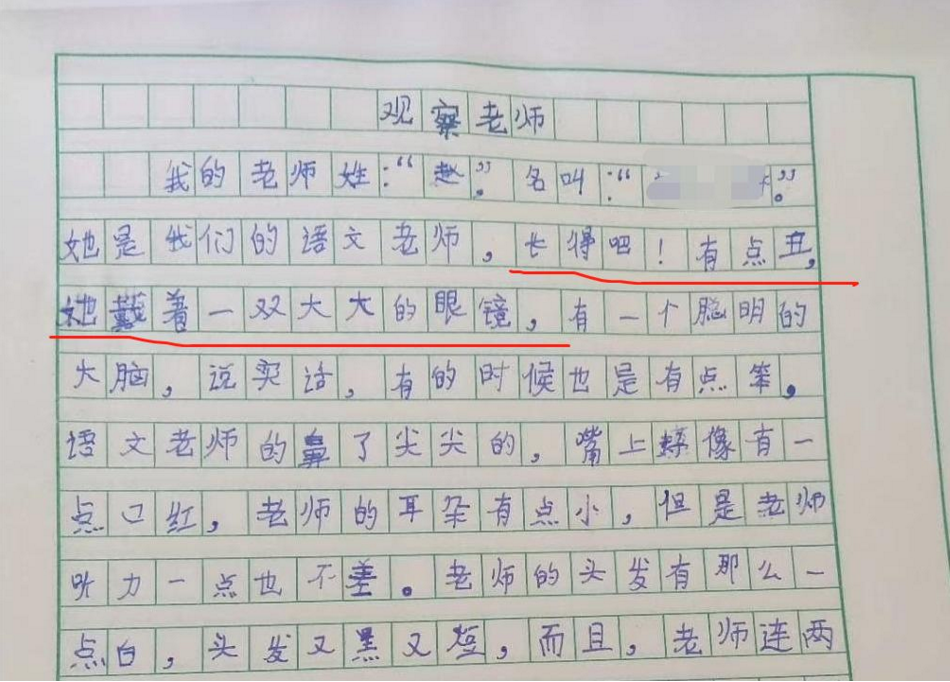 观察老师
我的老师姓：“赵”。名叫：“”。
她是我们的语文老师，长得吧！有点丑，
她戴着一双大大的眼镜，有一个聪明的
大脑，说实话，有的时候也是有点笨。
语文老师的鼻了尖尖的，嘴上好像有一
点口红，老师的耳朵有点小，但是老师
听力一点也不差。老师的头发有那么一
点白，头发又黑又短，而且，老师连两